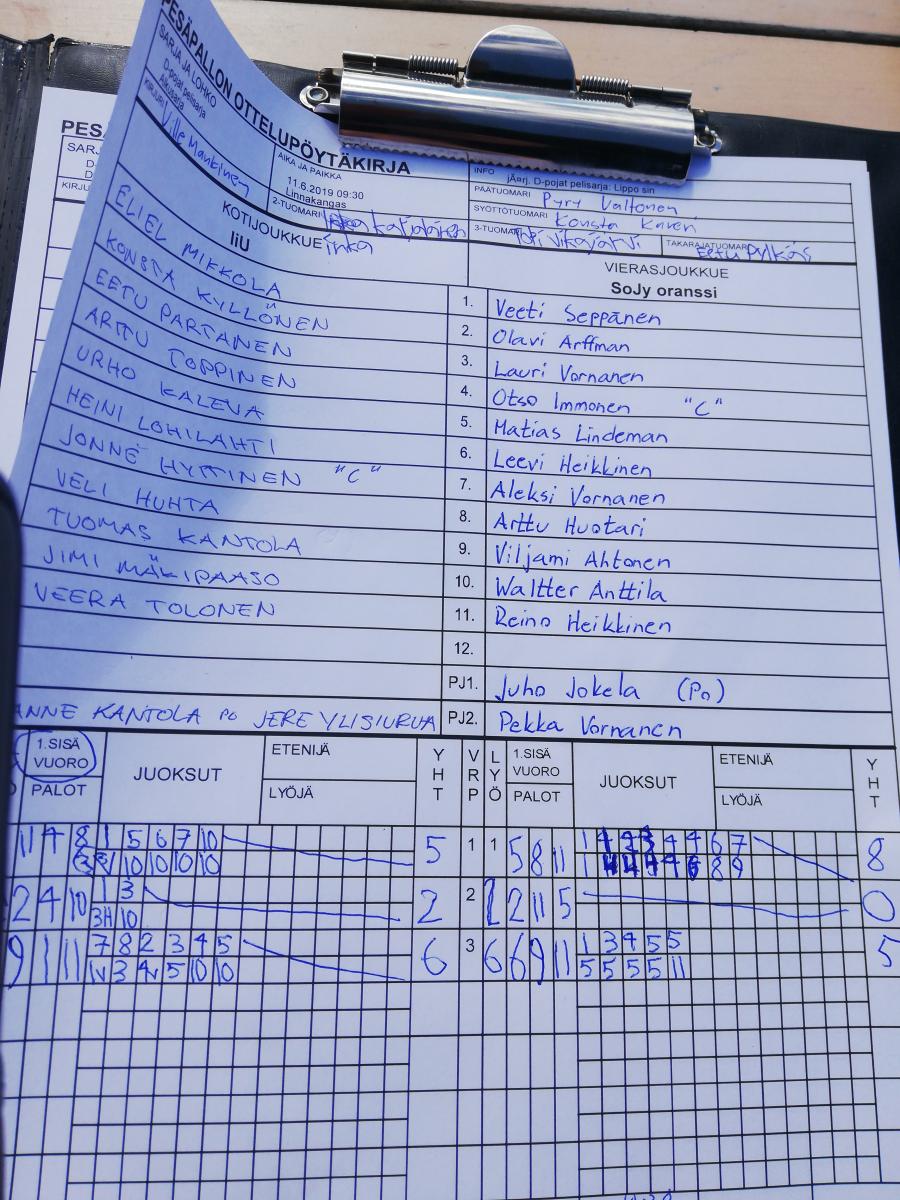 PESÄPALLON OTTELUPÖYTÄKIRJA
SARJA JA LOHKO
D-pojat pelisarja
Alkusarja
KIRJURI
Ville
AIKA JA PAIKKA
11.6.2019 09:30
Linnakangas
2-TUOMARI
INFO
jÄrj. D-pojat pelisarja: Lippo sin
PÄÄTUOMARI Pyry Valtonen
SYÖTTÖTUOMARI Konsta
3-TUOMARI
TAKARAJATUOMARI Eetu Pylkäs
KOTIJOUKKUE
IiU
VIERASJOUKKUE
SoJy oranssi
ELIEL MIKKOLA 1. Veeti Seppänen
KONSTA KYLLÖNEN 2. Olavi Arffman
EETU PARTANEN 3. Lauri Vornanen
ARTTU TOPPINEN 4. Otso Immonen "C"
URHO KALEVA 5. Matias Lindeman
HEINI LOHILAHTI 6. Leevi Heikkinen
JONNE HYTTINEN "C" 7. Aleksi Vornanen
VELI HUHTA 8. Arttu Huotari
TUOMAS KANTOLA 9. Viljami Ahtonen
JIMI MÄKIPAASO 10. Waltter Anttila
VEERA TOLONEN 11. Reino Heikkinen
12.
PJ1. Juho Jokela (Po)
ANNE KANTOLA PO JERE YLISIURUA PJ2. Pekka Vornanen
1.SISÄ VUORO JUOKSUT ETENIJÄ YHT VRP LYÖ 1.SISÄ VUORO JUOKSUT ETENIJÄ YHT
PALOT LYÖJÄ PALOT LYÖJÄ
11 4 8 1 5 6 7 10 5 1 1 5 8 11 8
10 10 10 10
2 4 10 1 3 2 2 2 11 5 0
3H 10
9 1 11 7 8 2 3 4 5 6 3 6 6 9 11 1 3 4 5 5 5
1v 3 4v 5 10 10 5 5 5 5 11